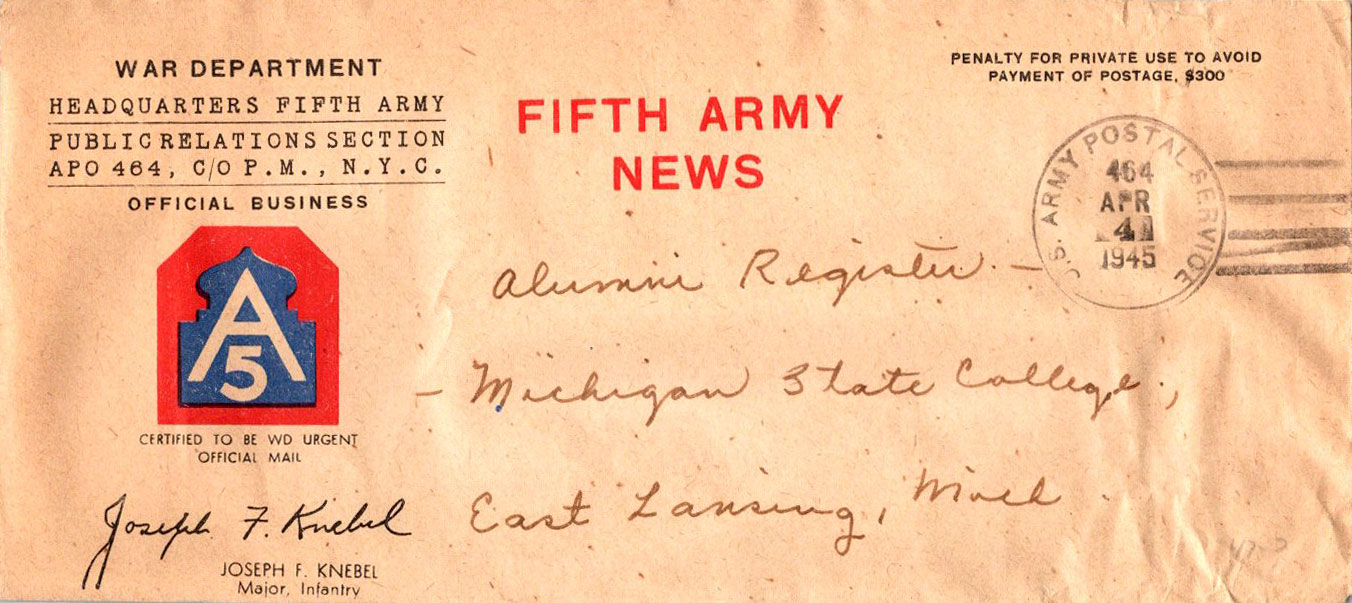 WAR DEPARTMENT
HEADQUARTERS FIFTH ARMY
PUBLIC RELATIONS SECTION
APO 464, C/O P.M., N.Y.C.
OFFICIAL BUSINESS
A
5
CERTIFIED TO BE WD URGENT
OFFICIAL MAIL
Joseph F. Knebel
JOSEPH F. KNEBEL
Major, Infantry
FIFTH ARMY
NEWS
PENALTY FOR PRIVATE USE TO AVOID
PAYMENT OF POSTAGE, $300
U.S. ARMY POSTAL SERVICE
464
APR
4
1945
Alumni Register. —
— Michigan State College,
East Lansing, Mich